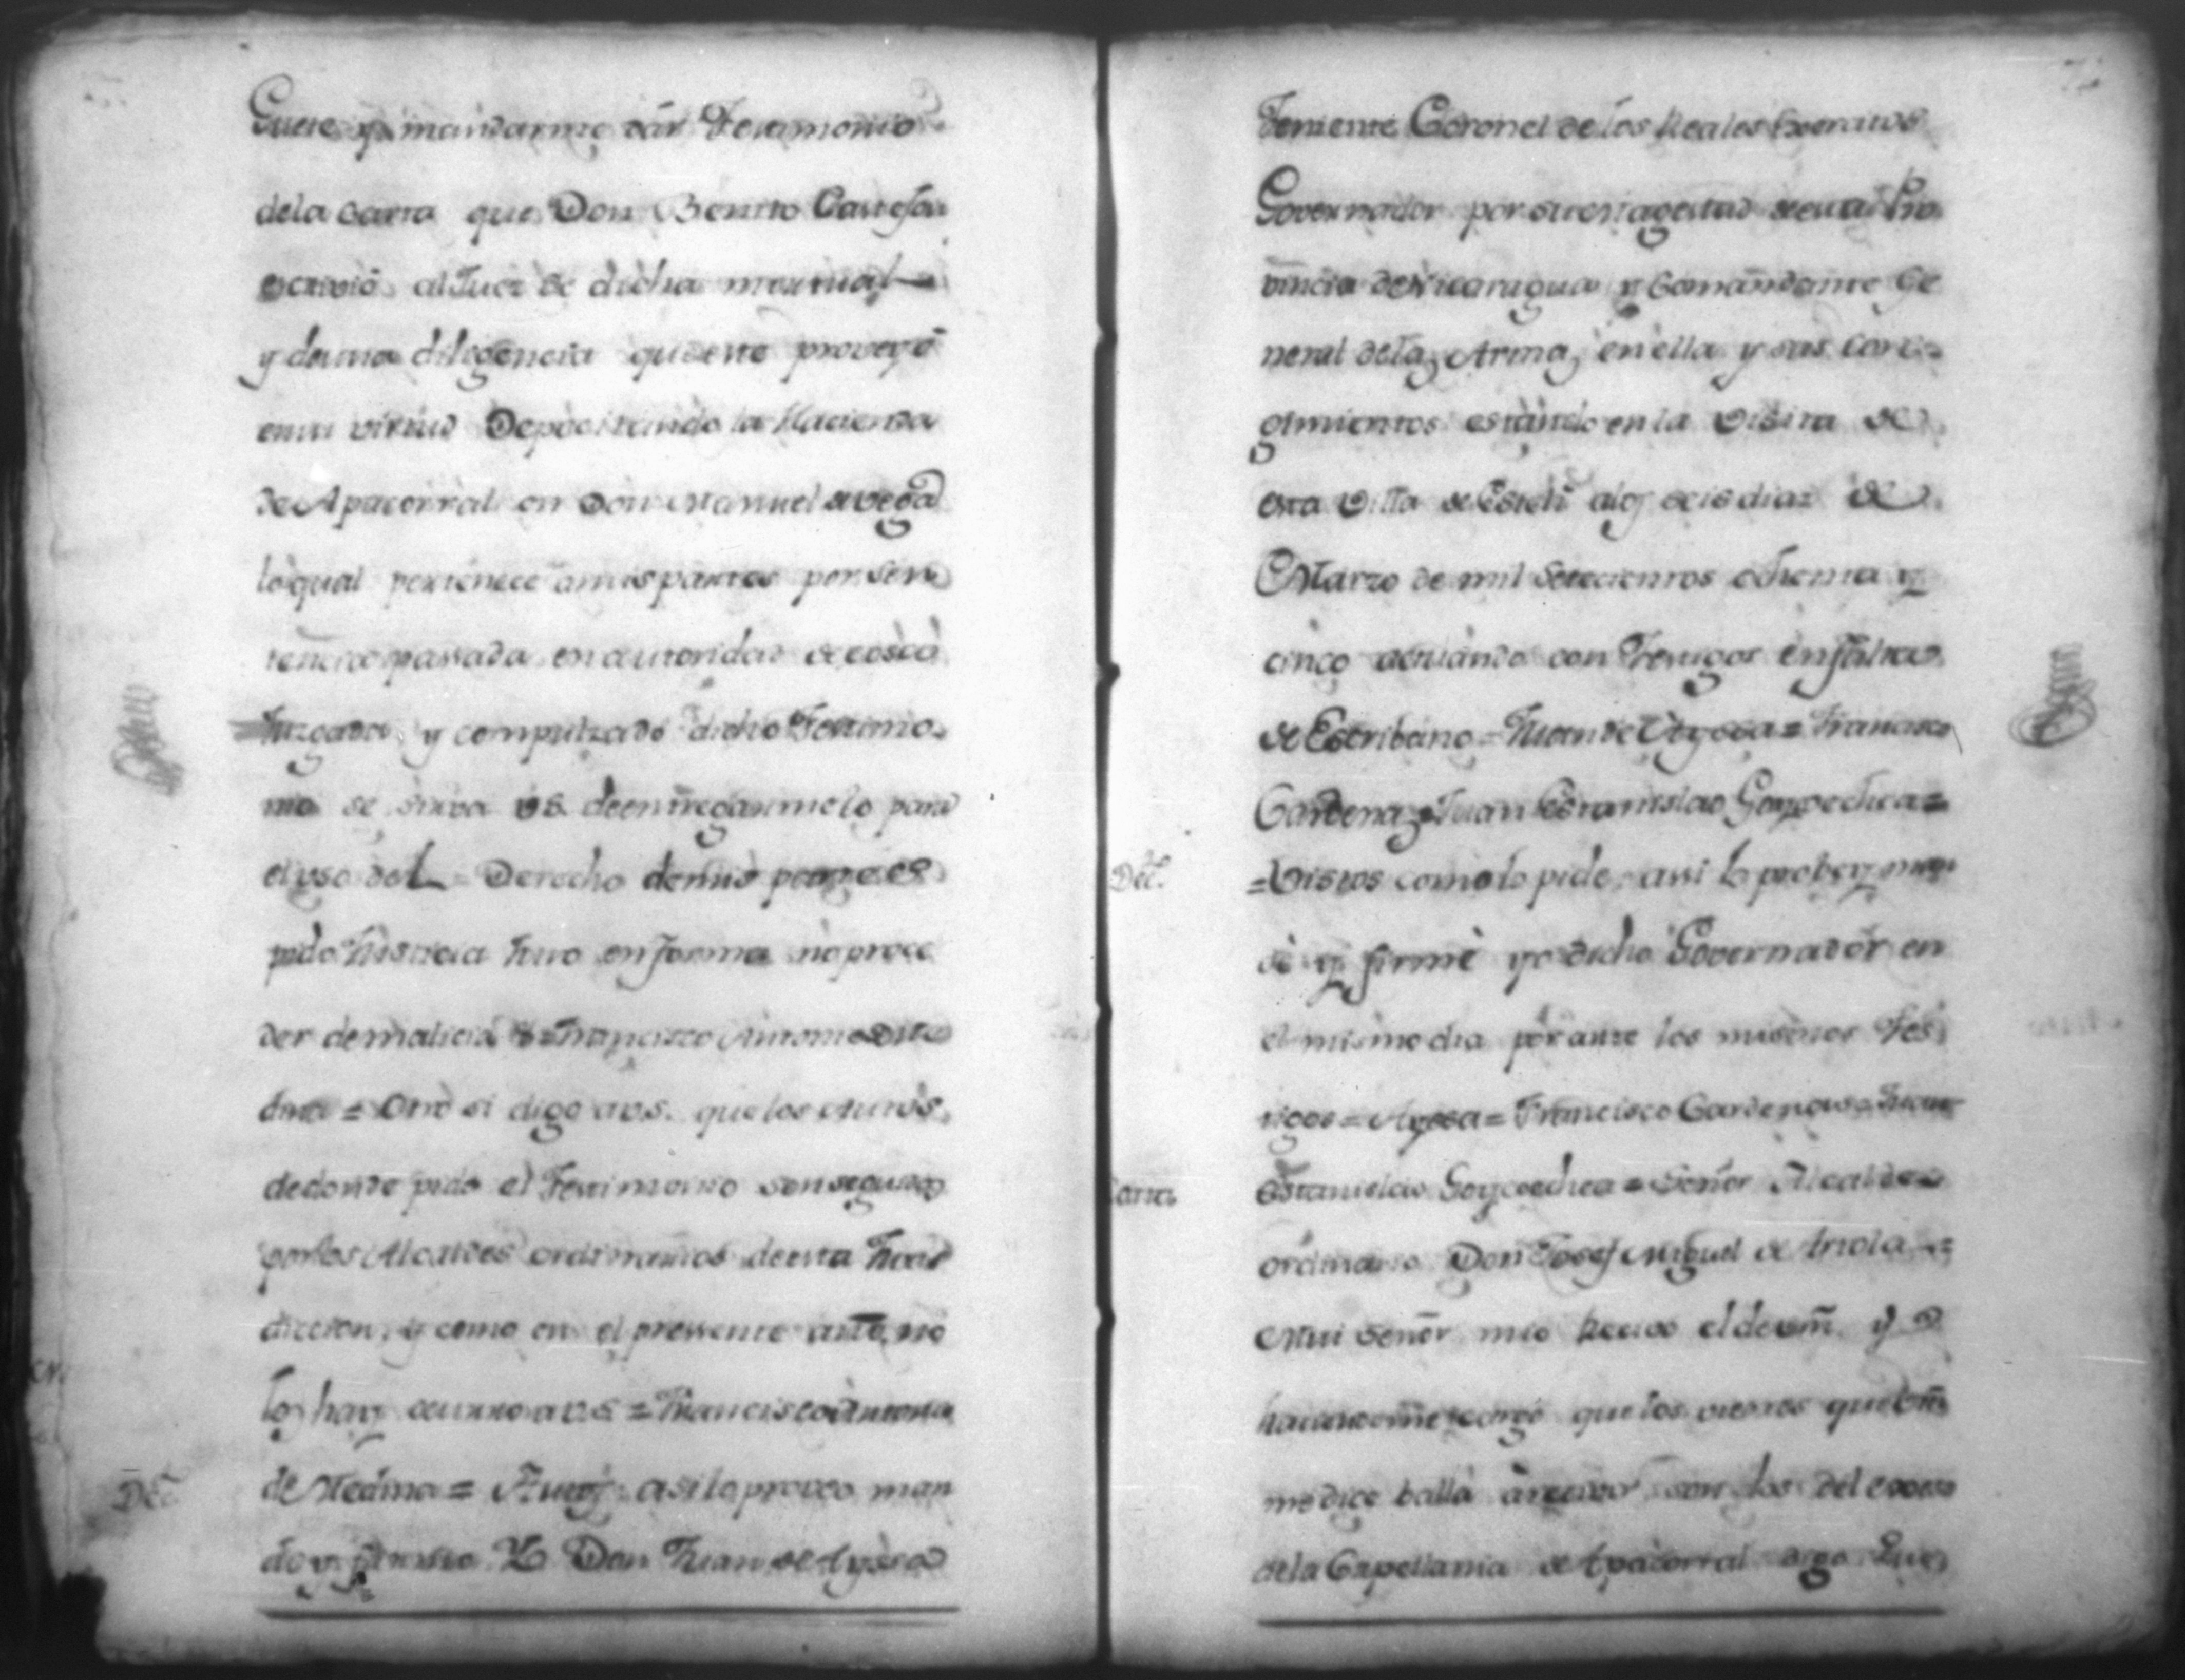 y mandarme dar Testimonio
dela Carta que Don Benito Castejon
escrivió al Juez de dicha mortual
y demas diligencia que este proveyó
en su virtud Depocitando la Hacienda
de Apacorral en Don Manuel de vega
lo qual pertenece amis partes por sen
tencia passada en autoridad de cosa
Juzgada, y compulsado dicho Testimo
nio se sirva VS. de entregarmelo para
el uso del Derecho de mis partes
pido Justicia Juro en forma no proce
der de malicia Francisco Antonio de Me
dina = Otro si digo a VS. que los Autos
dedonde pido el Testimonio son seguidos
por los Alcaldes ordinarios de esta Juris
diccion, y como en el pressente año no
los hay ocurro a VS = Francisco Antonio
de Medina = Autos asi lo proveo, man
do y firmo Yo Don Juan de Ayssa
Dec.to
Teniente Coronel de los Reales Exercitos
Governador por su Magestad de esta Pro
vincia de Nicaragua y Comandante Ge
neral delas Armas en ella y sus Corre
gimientos estando en la Visita de
esta Villa de Esteli alos seis dias de
Marzo de mil Setecientos ochenta y
cinco actuando con Testigos en falta
de Escribano = Juan de Ayssa = Francisco
Cardenas = Juan Estanislao Goycoechea =
Dec.to
= Vistos como lo pide, assi lo probey man
dè y firmè yo dicho Governadòr en
el mismo dia por ante los mismos Tes
tigos = Ayssa = Francisco Cardenas = Juan
Carta
Estanislao Goycoechea = Señor Alcalde
ordinario Don Josef Miguel de Arrola =
Mui Señor mio Recivo el de vm̃. y
haciendome cargo que los vienes que Vm̃
me dice balla à recivir son los del
dela Capellania de Apacorral digo Que